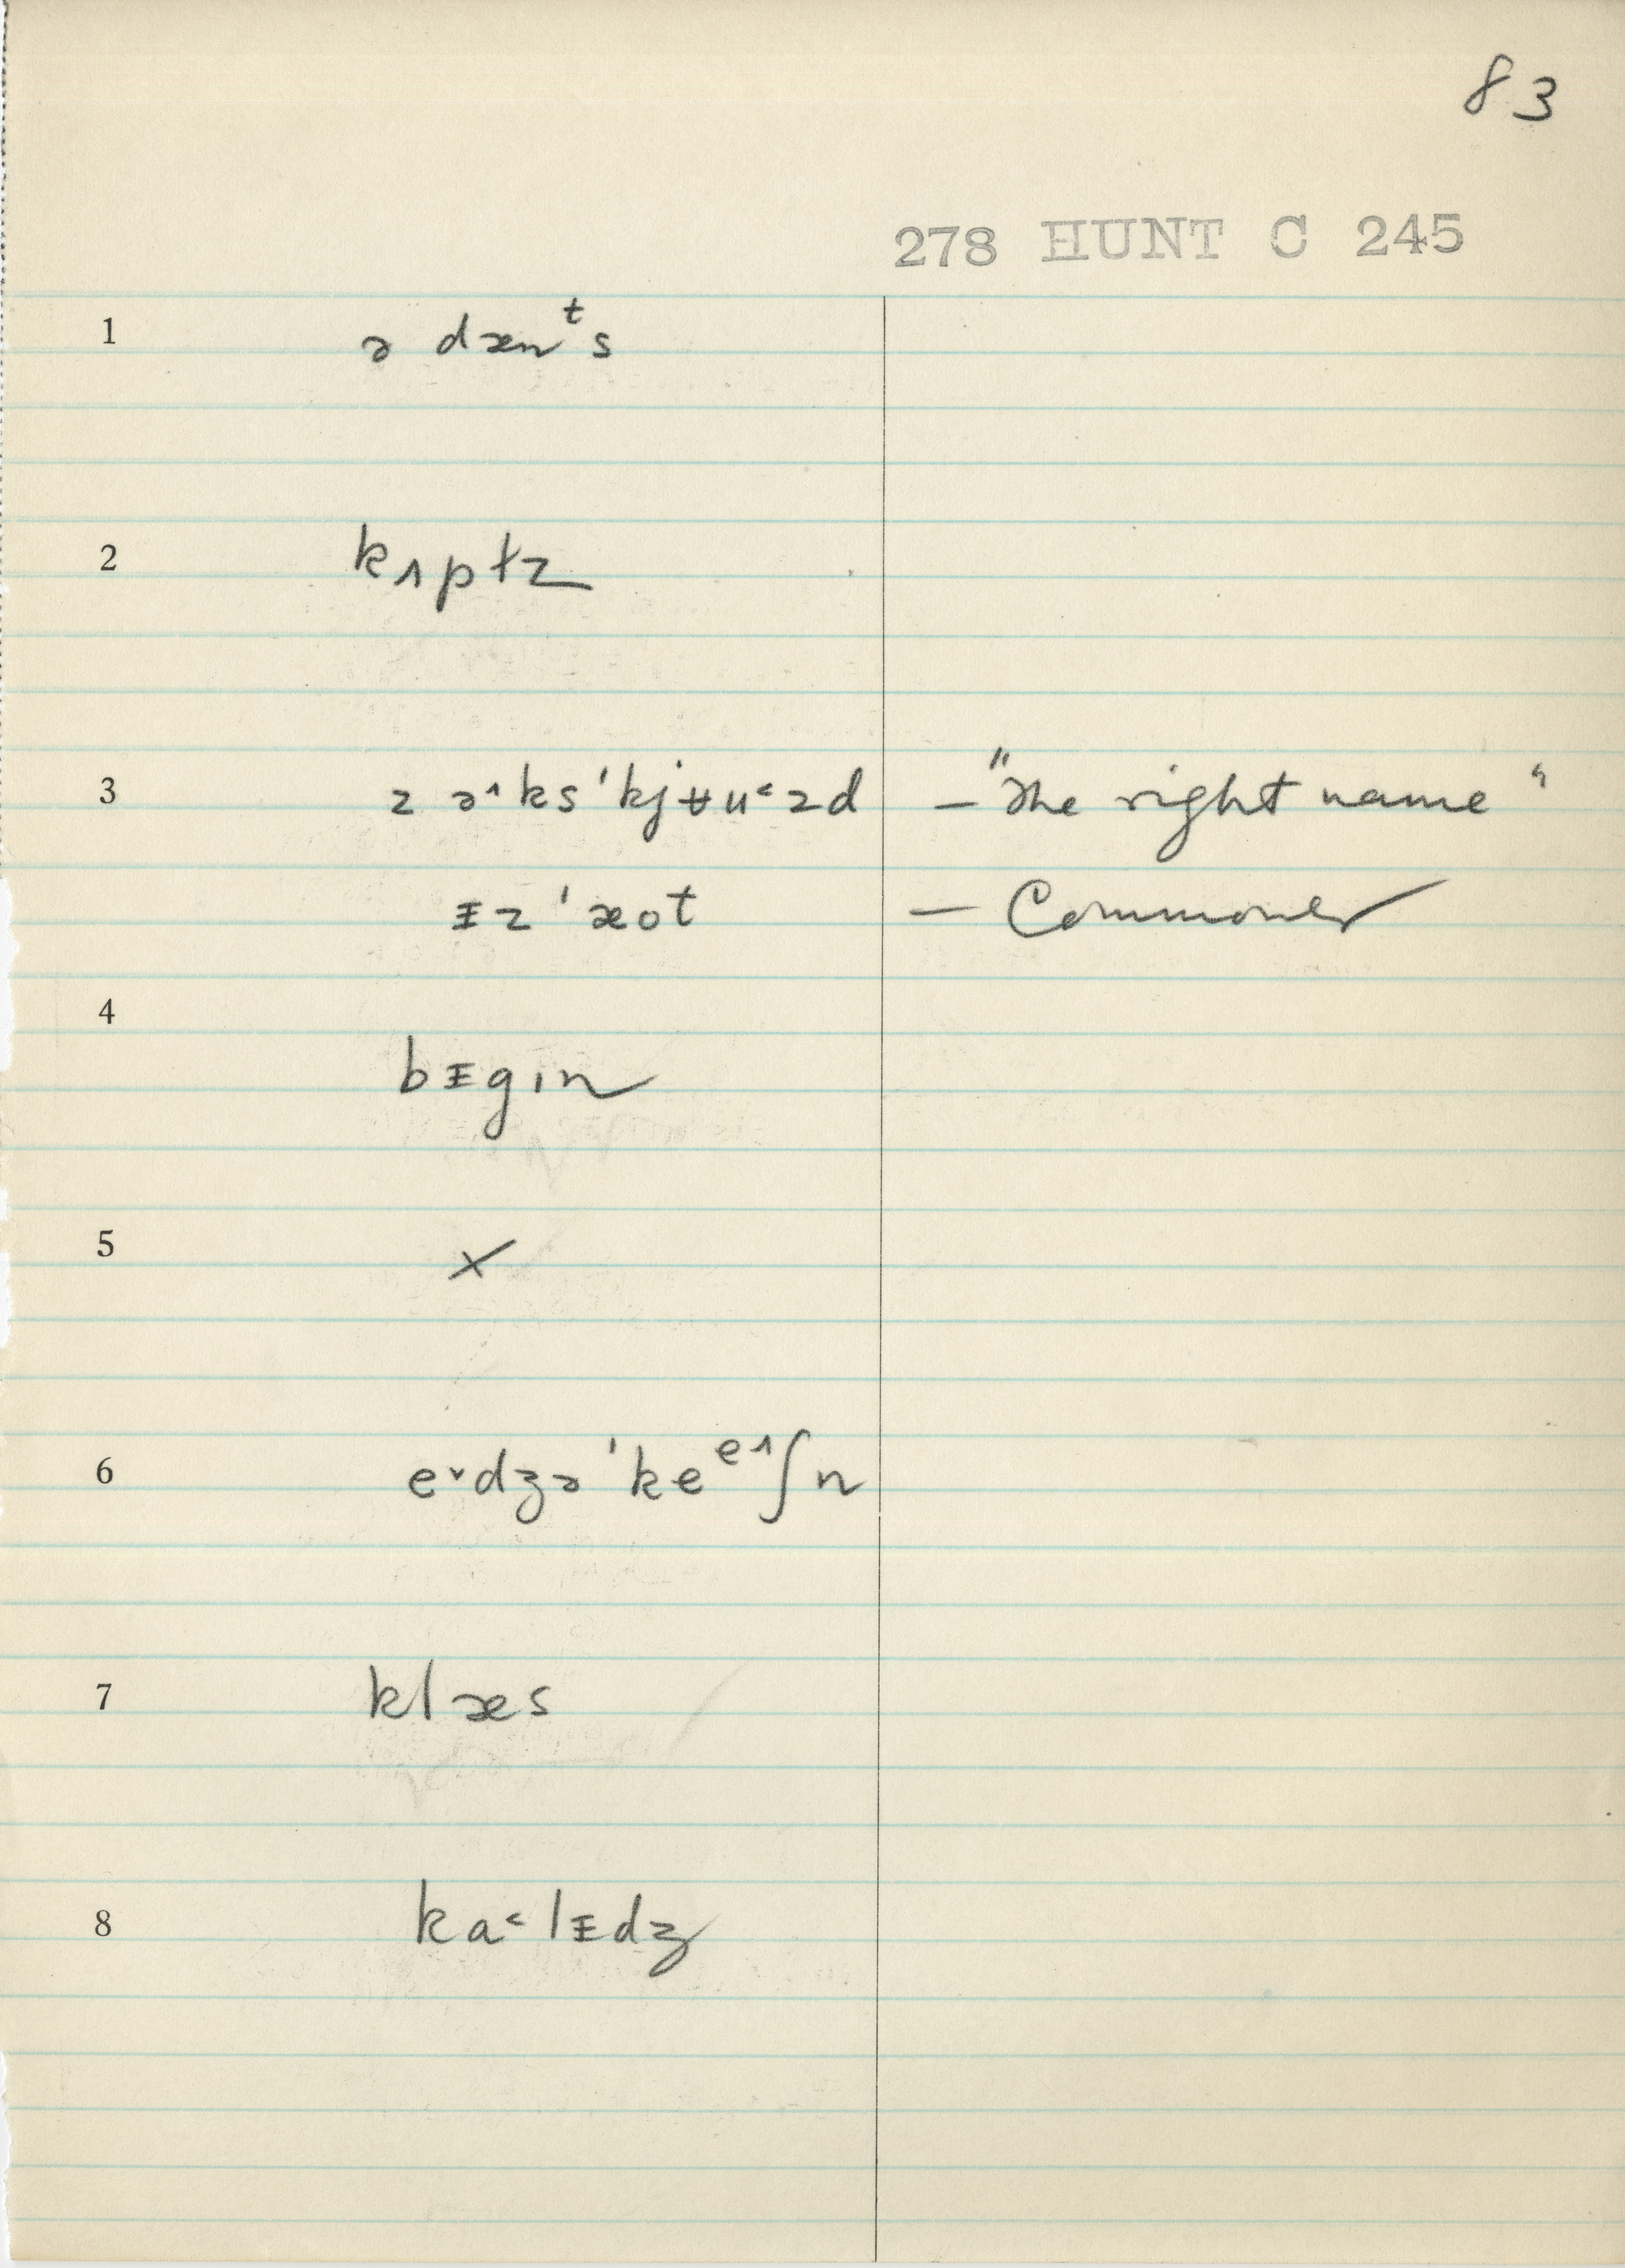 83
278 HUNT C 245
1 ə dænᵗs
2 kʌptz
3 z ə˄ks'kjʉu˂zd – "The right name"
ᵻz'æot – Commoner
4
bᵻgin
5 ×
6 e˅dʒə'keᵉ˄ʃn
7 klæs
8 ka˂lᵻdʒ